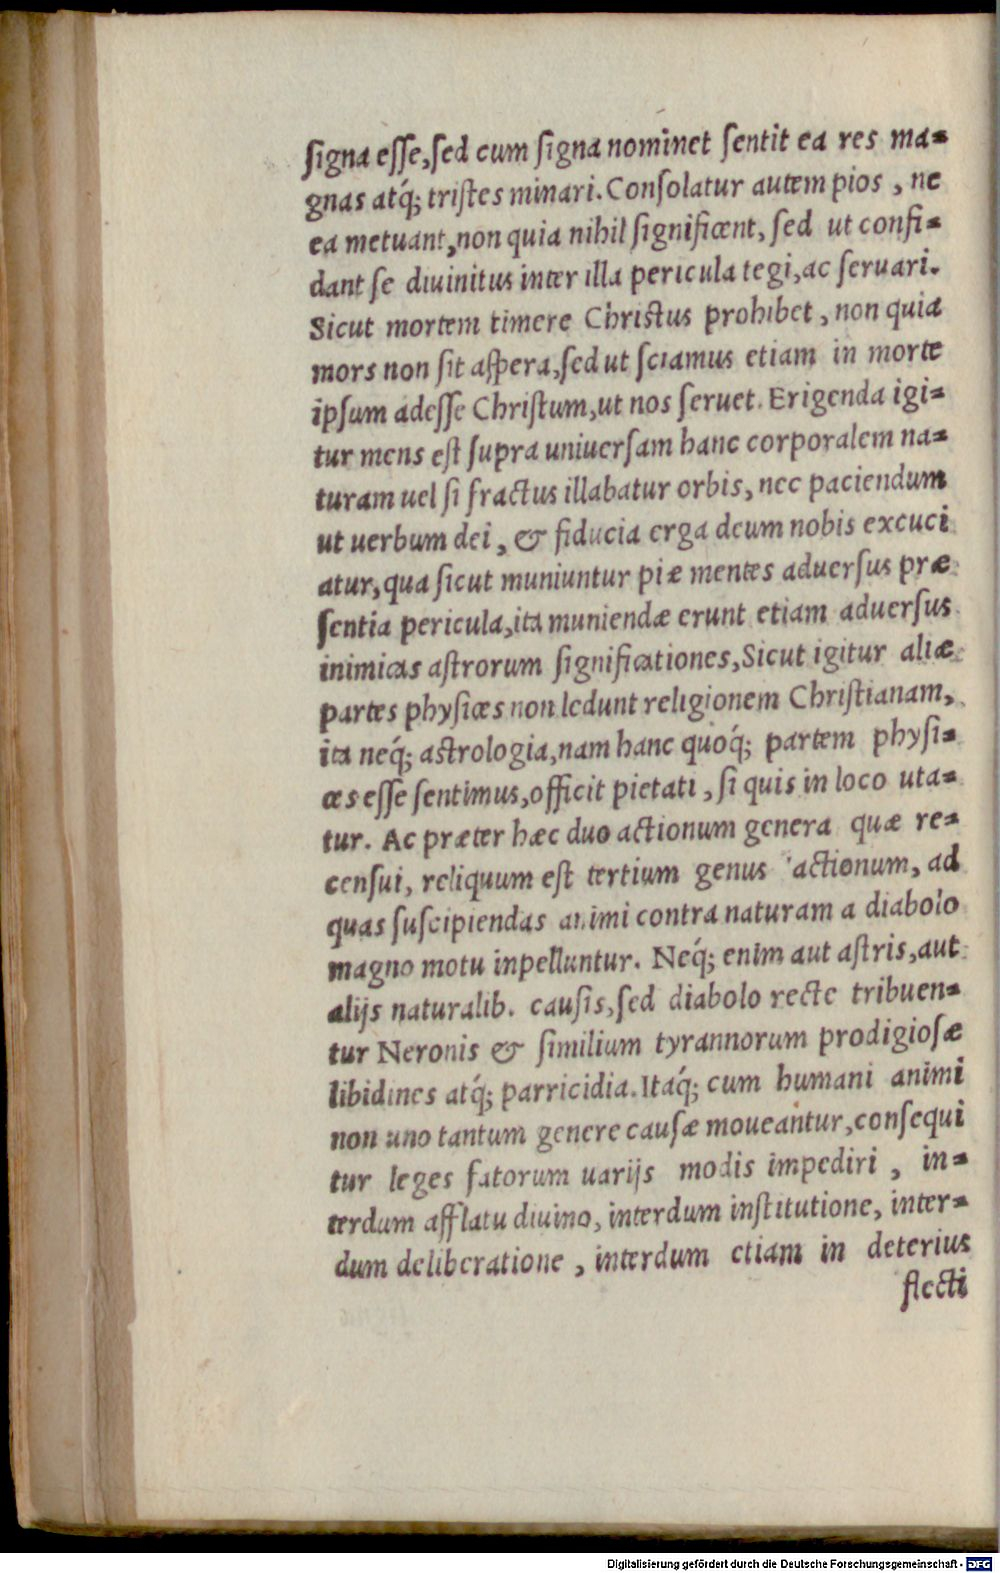 ſigna eſſe,ſed cum ſigna nominet ſentit ea res ma-
gnas atq́; triſtes minari. Conſolatur autem pios , ne
ea metuant,non quia nihil ſignificent, ſed ut confi-
dant ſe diuinitus inter illa pericula tegi,ac ſeruari.
Sicut mortem timere Chriſtus prohibet , non quia
mors non ſit aſpera,ſed ut ſciamus etiam in morte
ipſum adeſſe Chriſtum,ut nos ſeruet. Erigenda igi-
tur mens eſt ſupra uniuerſam hanc corporalem na-
turam uel ſi fractus illabatur orbis, nec paciendum
ut uerbum dei , & fiducia erga deum nobis excuci
atur,qua ſicut muniuntur piæ mentes aduerſus præ
ſentia pericula,ita muniendæ erunt etiam aduerſus
inimicas aſtrorum ſignificationes,Sicut igitur aliæ
partes phyſices non ledunt religionem Chriſtianam,
ita neq́; aſtrologia,nam hanc quoq́; partem phyſi-
ces eſſe ſentimus,officit pietati , ſi quis in loco uta-
tur. Ac præter hæc duo actionum genera quæ re-
cenſui, reliquum eſt tertium genus actionum, ad
quas ſuſcipiendas animi contra naturam a diabolo
magno motu inpelluntur. Neq́; enim aut aſtris,aut
alijs naturalib. cauſis,ſed diabolo recte tribuen-
tur Neronis & ſimilium tyrannorum prodigioſæ
libidines atq́; parricidia. Itaq́; cum humani animi
non uno tantum genere cauſæ moueantur,conſequi
tur leges fatorum uarijs modis impediri , in-
terdum afflatu diuino, interdum inſtitutione, inter-
dum deliberatione , interdum etiam in deterius
flecti
Digitalisierung gefördert durch die Deutsche Forschungsgemeinschaft - DFG